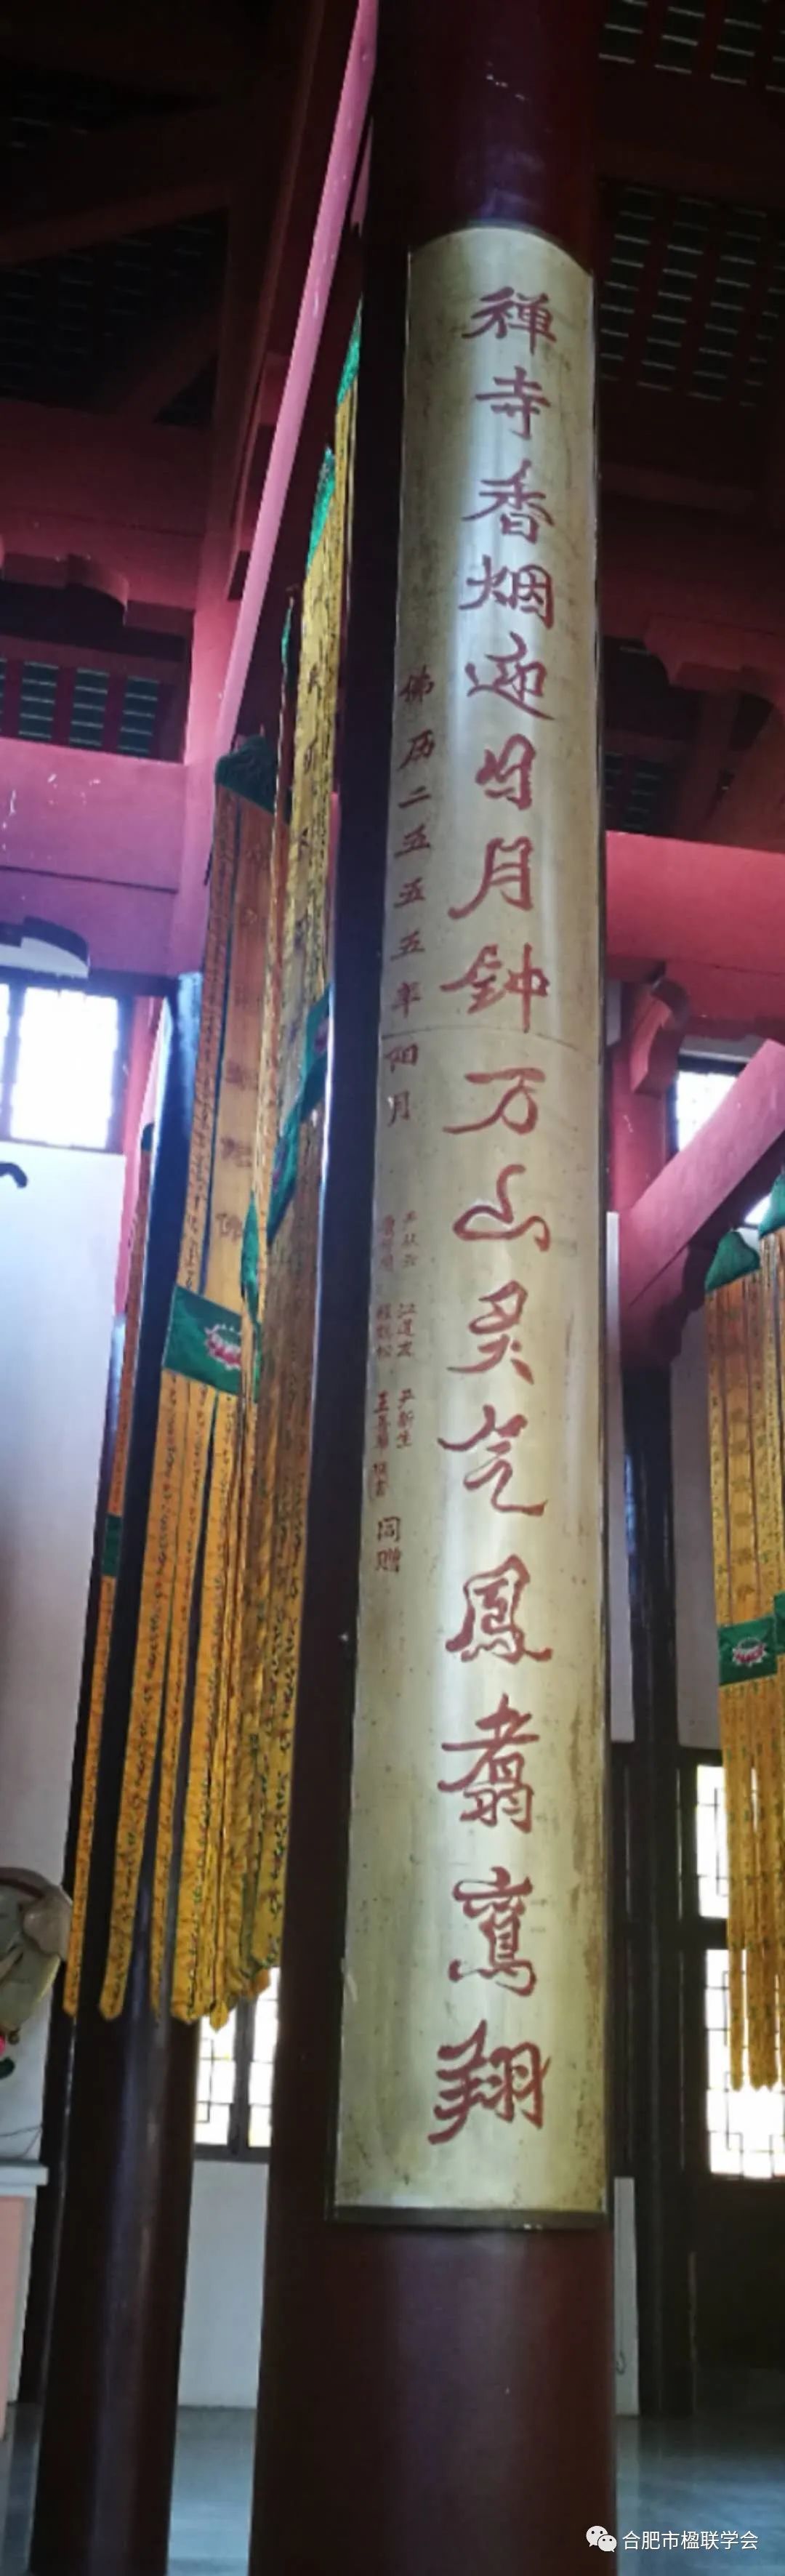 禅寺香烟迎日月钟万山灵气凤翥鸾翔
佛历二五五五年阳月
江道友
尹新生
同赠
合肥市楹联学会